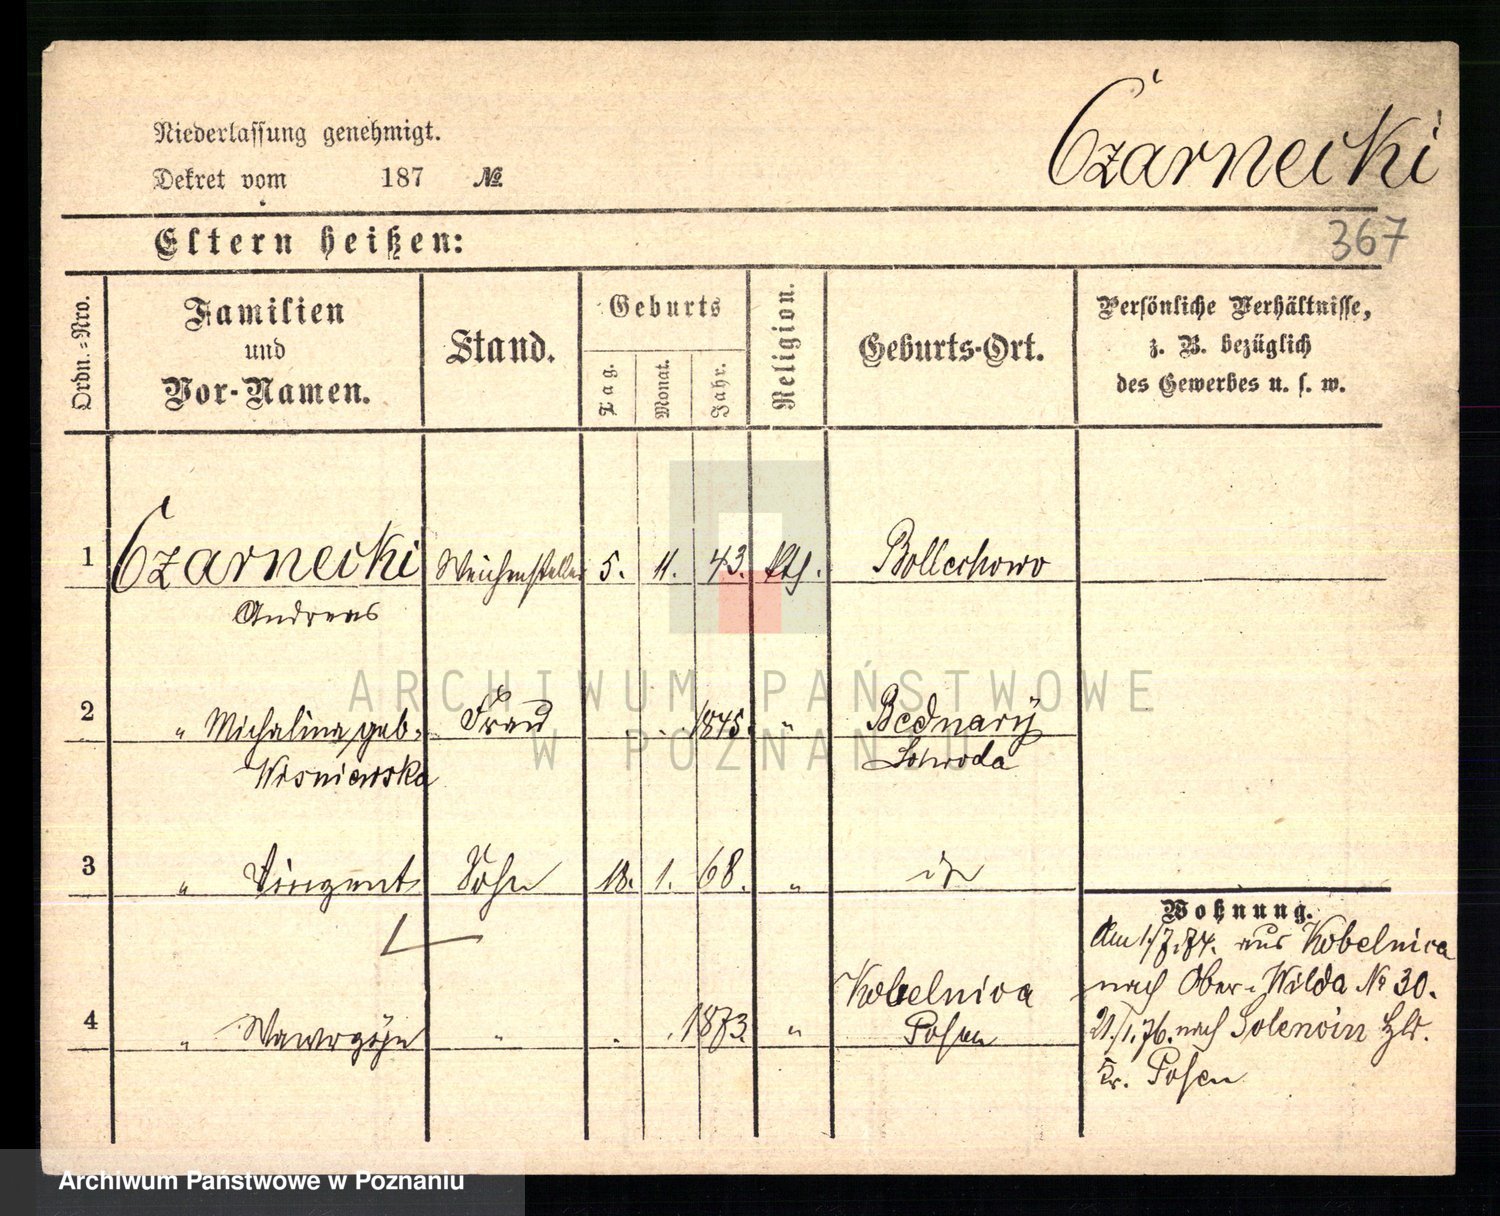 Czarnecki
Niederlassung genehmigt.
Dekret vom 187 №
Eltern heißen:
367
Ordn.-Nro.
Familien
und
Vor-Namen.
Stand.
Geburts
Tag.
Monat.
Jahr.
Religion.
Geburts-Ort.
Persönliche Verhältnisse,
z. B. bezüglich
des Gewerbes u. s. w.
1 Czarnecki Weichensteller 5. 11. 43. kth. Bollechowo
Andreas
2 " Michalina geb. Frau 1845. " Bednarÿ
Wisniewska Schroda
3 " Vinczent Sohn 18. 1. 68. "
4 " Wawrzÿn " 1873. " Kobelnica
Posen
Wohnung.
Am 1./7.74. aus Kobelnica
nach Ober-Wilda № 30.
21./1.76. nach
Kr. Posen
ARCHIWUM PAŃSTWOWE
W POZNANIU
Archiwum Państwowe w Poznaniu